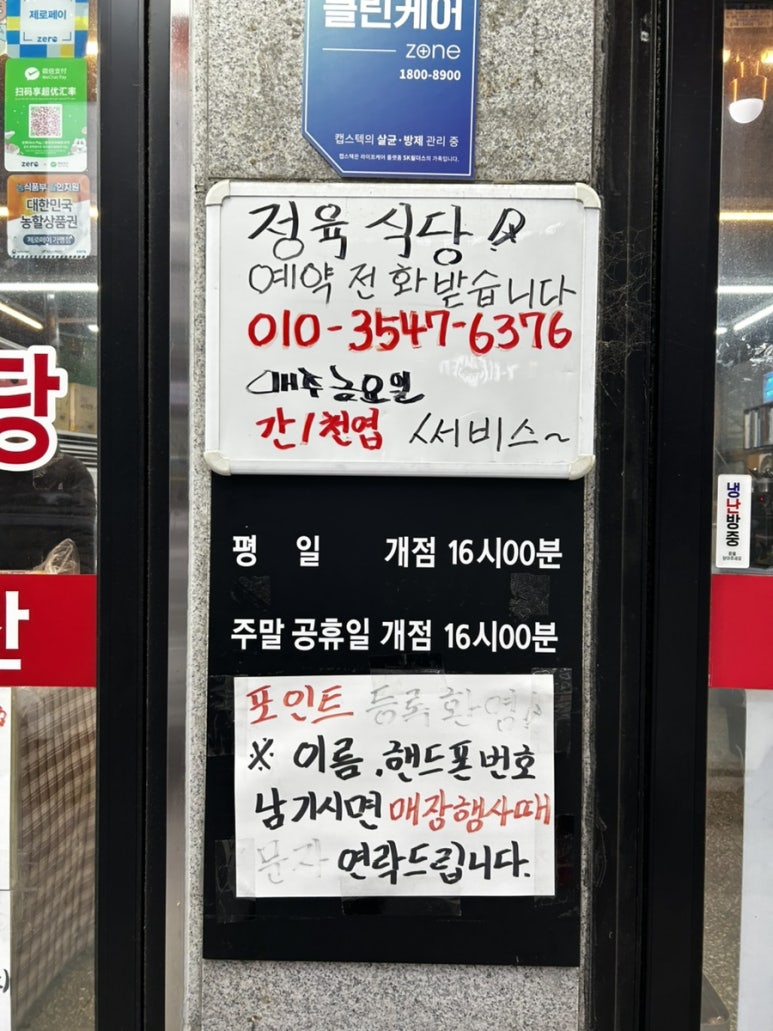 제로페이
zero
微信支付
WeChat Pay
扫码享超优汇率
zero
농식품부 할인지원
대한민국
농할상품권
제로페이 가맹점
클린케어
zone
1800-8900
캡스텍의 살균·방제 관리 중
캡스텍은 라이프케어 플랫폼 SK쉴더스의 가족입니다.
정육 식당
예약 전화받습니다
010-3547-6376
매주 금요일
간/천엽 써비스~
탕
평 일 개점 16시00분
주말 공휴일 개점 16시00분
포인트 등록 환영!
※ 이름.핸드폰번호
남기시면 매장행사때
문자 연락드립니다.
냉난방중